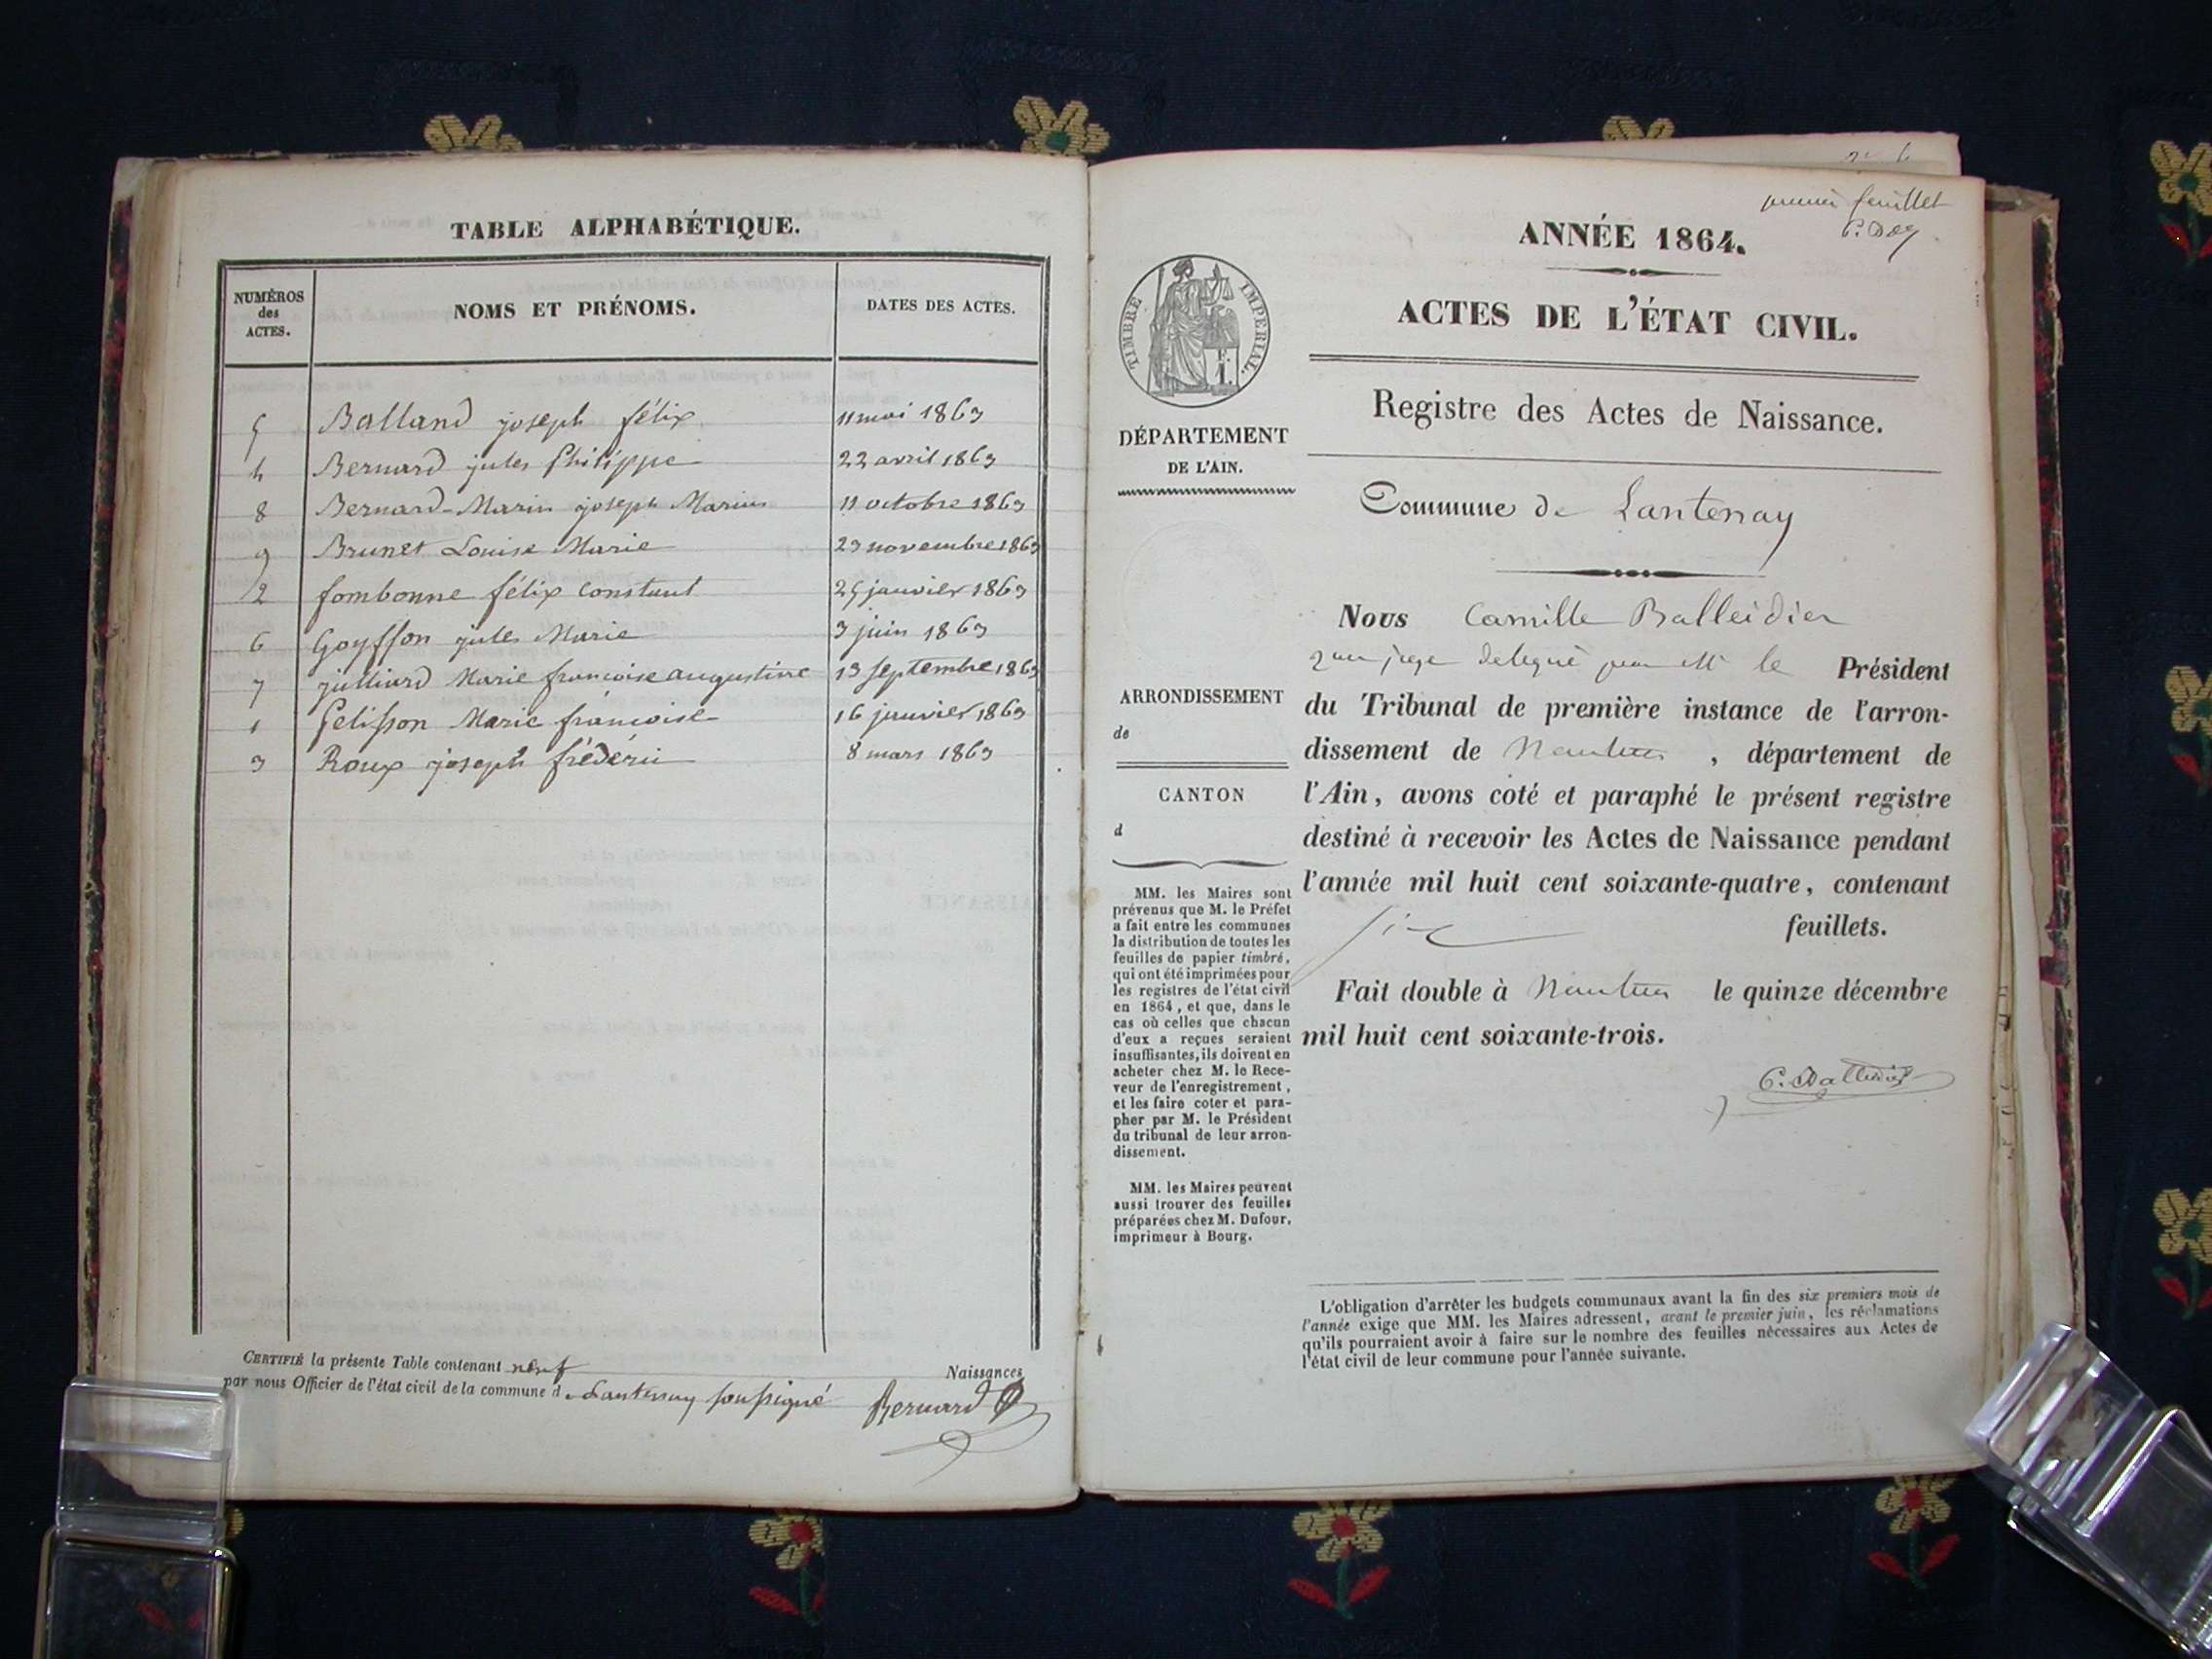 TABLE ALPHABÉTIQUE.
NUMÉROS des ACTES.
NOMS ET PRÉNOMS.
DATES DES ACTES.
5 Balland joseph félix 11 mai 1863
4 Bernard jules Philippe 22 avril 1863
8 Bernard-Marin joseph Marius 11 octobre 1863
9 Brunet Louise Marie 23 novembre 1863
2 fombonne félix Constant 25 janvier 1863
6 Goyffon jules Marie 3 juin 1863
7 julliard Marie françoise augustine 13 septembre 1863
1 Pelisson Marie françoise 16 janvier 1863
3 Roux joseph frédéric 8 mars 1863
CERTIFIÉ la présente Table contenant neuf Naissances
par nous Officier de l'état civil de la commune de Lantenay soussigné Bernard
premier feuillet
ANNÉE 1864.
ACTES DE L'ÉTAT CIVIL.
Registre des Actes de Naissance.
TIMBRE IMPÉRIAL.
DÉPARTEMENT
DE L'AIN.
ARRONDISSEMENT
de
CANTON
d
MM. les Maires sont
prévenus que M. le Préfet
a fait entre les communes
la distribution de toutes les
feuilles de papier timbré,
qui ont été imprimées pour
les registres de l'état civil
en 1864, et que, dans le
cas où celles que chacun
d'eux a reçues seraient
insuffisantes, ils doivent en
acheter chez M. le Rece-
veur de l'enregistrement,
et les faire coter et para-
pher par M. le Président
du tribunal de leur arron-
dissement.
MM. les Maires peuvent
aussi trouver des feuilles
préparées chez M. Dufour,
imprimeur à Bourg.
Commune de Lantenay
Nous Camille Balleidier
juge delegué par Mr le Président
du Tribunal de première instance de l'arron-
dissement de Nantua, département de
l'Ain, avons coté et paraphé le présent registre
destiné à recevoir les Actes de Naissance pendant
l'année mil huit cent soixante-quatre, contenant
six feuillets.
Fait double à Nantua le quinze décembre
mil huit cent soixante-trois.
C. Balleidier
L'obligation d'arrêter les budgets communaux avant la fin des six premiers mois de
l'année exige que MM. les Maires adressent, avant le premier juin, les réclamations
qu'ils pourraient avoir à faire sur le nombre des feuilles nécessaires aux Actes de
l'état civil de leur commune pour l'année suivante.